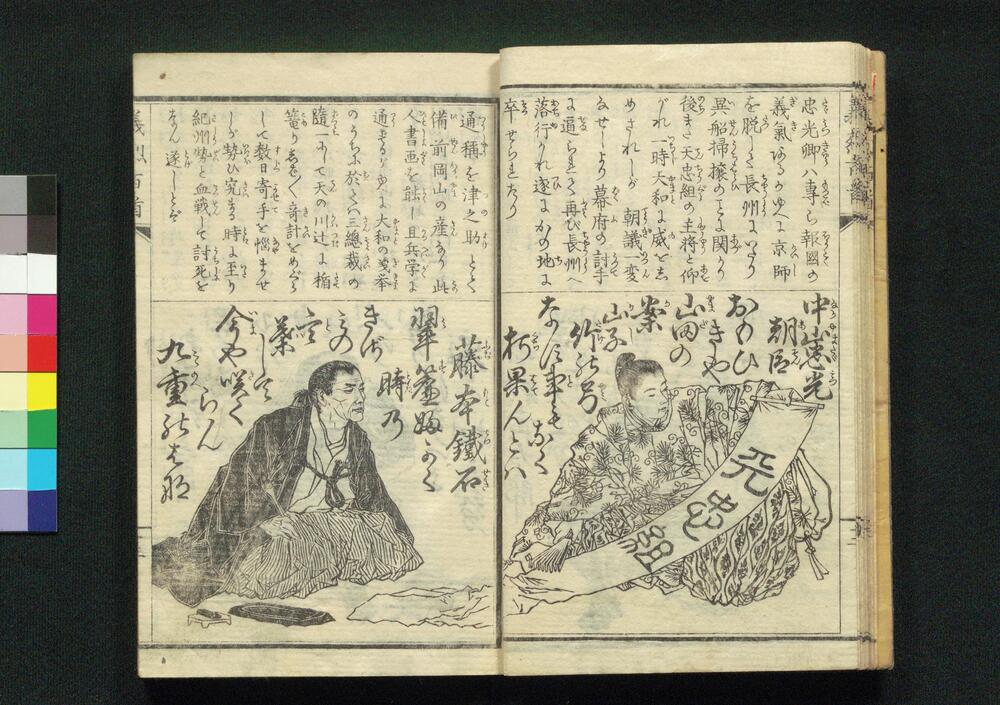 忠光卿ハ専ら報國の
義氣あるがゆへに京師
を脱して長州にいたり
異船掃攘のことに関り
後また天忠組の主将と仰
がれ一時大和に威を示
めされしが 朝議一変
なせしより幕府の討手
に逼られて再び長州へ
落行かれ遂にかの地に
卒せられたり
中山忠光
朝臣
おもひ
きや
山田の
案
山子
竹の弓
なす事もなく
朽果んとハ
天忠組
通称を津之助とて
備前岡山の産なり此
人書画を能し且兵学に
通ぜるがゆへに大和の義挙
のうちに於てハ三總裁の
隨一にして天の川辻に楯
篭り
して数日寄手を悩ませ
しが勢ひ究まる時に至り
紀州勢と血戦して討死を
なん遂しとぞ
藤本鐵石
翠簾
時乃
今や咲くらん
九重の
義烈百首